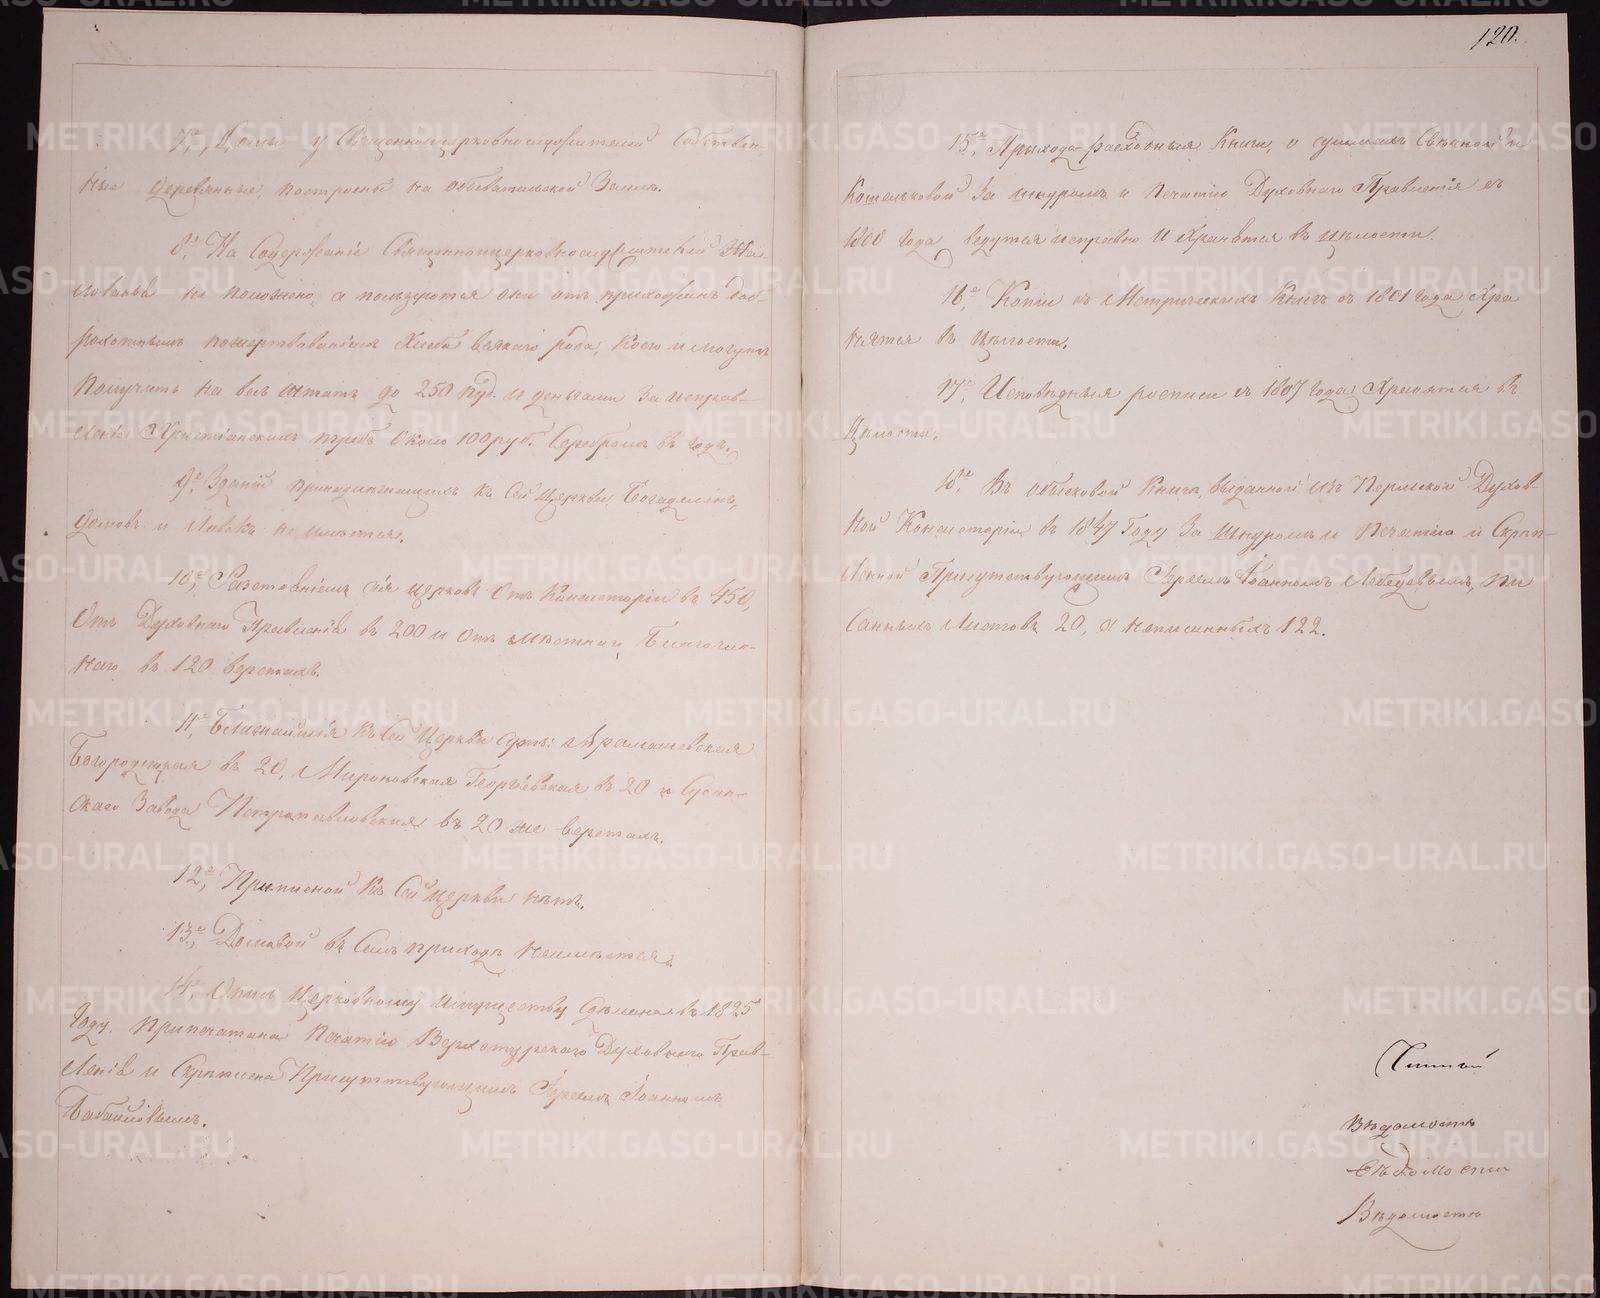 7е, Домы у Священноцерковнослужителей Собствен-
ные деревянные, построены на обывательской Земле.
8е, На Содержаніе Священноцерковнослужителей Жа-
лованья не положено, а пользуются они отъ прихожанъ доб-
рохотнымъ пожертвованіемъ Хлеба всякаго рода, коего и могутъ
получить на весь штатъ до 250 пуд. и деньгами за исправ-
леніе Христіанскихъ требъ около 100 руб. Серебромъ въ годъ.
9е, Зданій принадлежащихъ къ Сей Церкви, Богаделенъ,
домовъ и Лавокъ не имѣется.
10е, Разстояніемъ сія церковь Отъ Консисторіи въ 450,
Отъ Духовнаго Правленія въ 200 и Отъ мѣстнаго Благочин-
наго въ 120 верстахъ.
11е, Ближайшія къ Сей Церкви суть: Арамашевская
Богородицкая въ 20, Мироновская Георгіевская въ 20 и Сусан-
скаго Завода Петропавловская въ 20 же верстахъ.
12е, Приписной къ Сей церкви нѣтъ.
13е, Домовой въ Семъ приходѣ неимѣется.
14, Опись Церковному Имуществу Сдѣлана въ 1825
Году, припечатана Печатію Верхотурскаго Духовнаго Прав-
ленія и Скрѣплена Присутствующимъ Іереемъ Іоанномъ
120.
15е, Прихода-расходныя Книги, о суммахъ Свѣчной и
Кошельковой За шнуромъ и печатію Духовнаго Правленія съ
1800 года ведутся исправно и Хранятся въ цѣлости.
16е, Копіи съ Метрическихъ Книгъ съ 1801 года Хра
нятся въ цѣлости.
17е, Исповѣдныя росписи съ 1807 года Хранятся въ
Цѣлости.
18е, Въ обыскной Книгѣ, выданной изъ Пермской Духов-
ной Консисторіи въ 1847 Году За Шнуромъ и Печатію и Скрѣп-
ленной Присутствующимъ Іереемъ Іоанномъ Лебедевымъ, пи
санныхъ Листовъ 20, а неписанныхъ 122.
Вѣдомость
Вѣдомости
Вѣдомость
METRIKI.GASO-URAL.RU